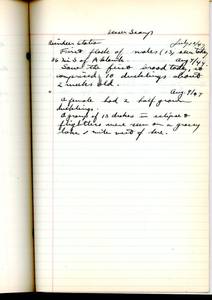 Lesser Scaup
Reindeer Station July 20/47
First flock of males (13) seen today
36 mi S of Aklavik. Aug 7/47.
Saw the first brood today, it
comprised 10 ducklings about
2 weeks old.
Aug. 9/47
A female had 2 half grown
ducklings.
A group of 13 drakes in eclipse &
flightless were seen on a grassy
lake 1 mile west of here.